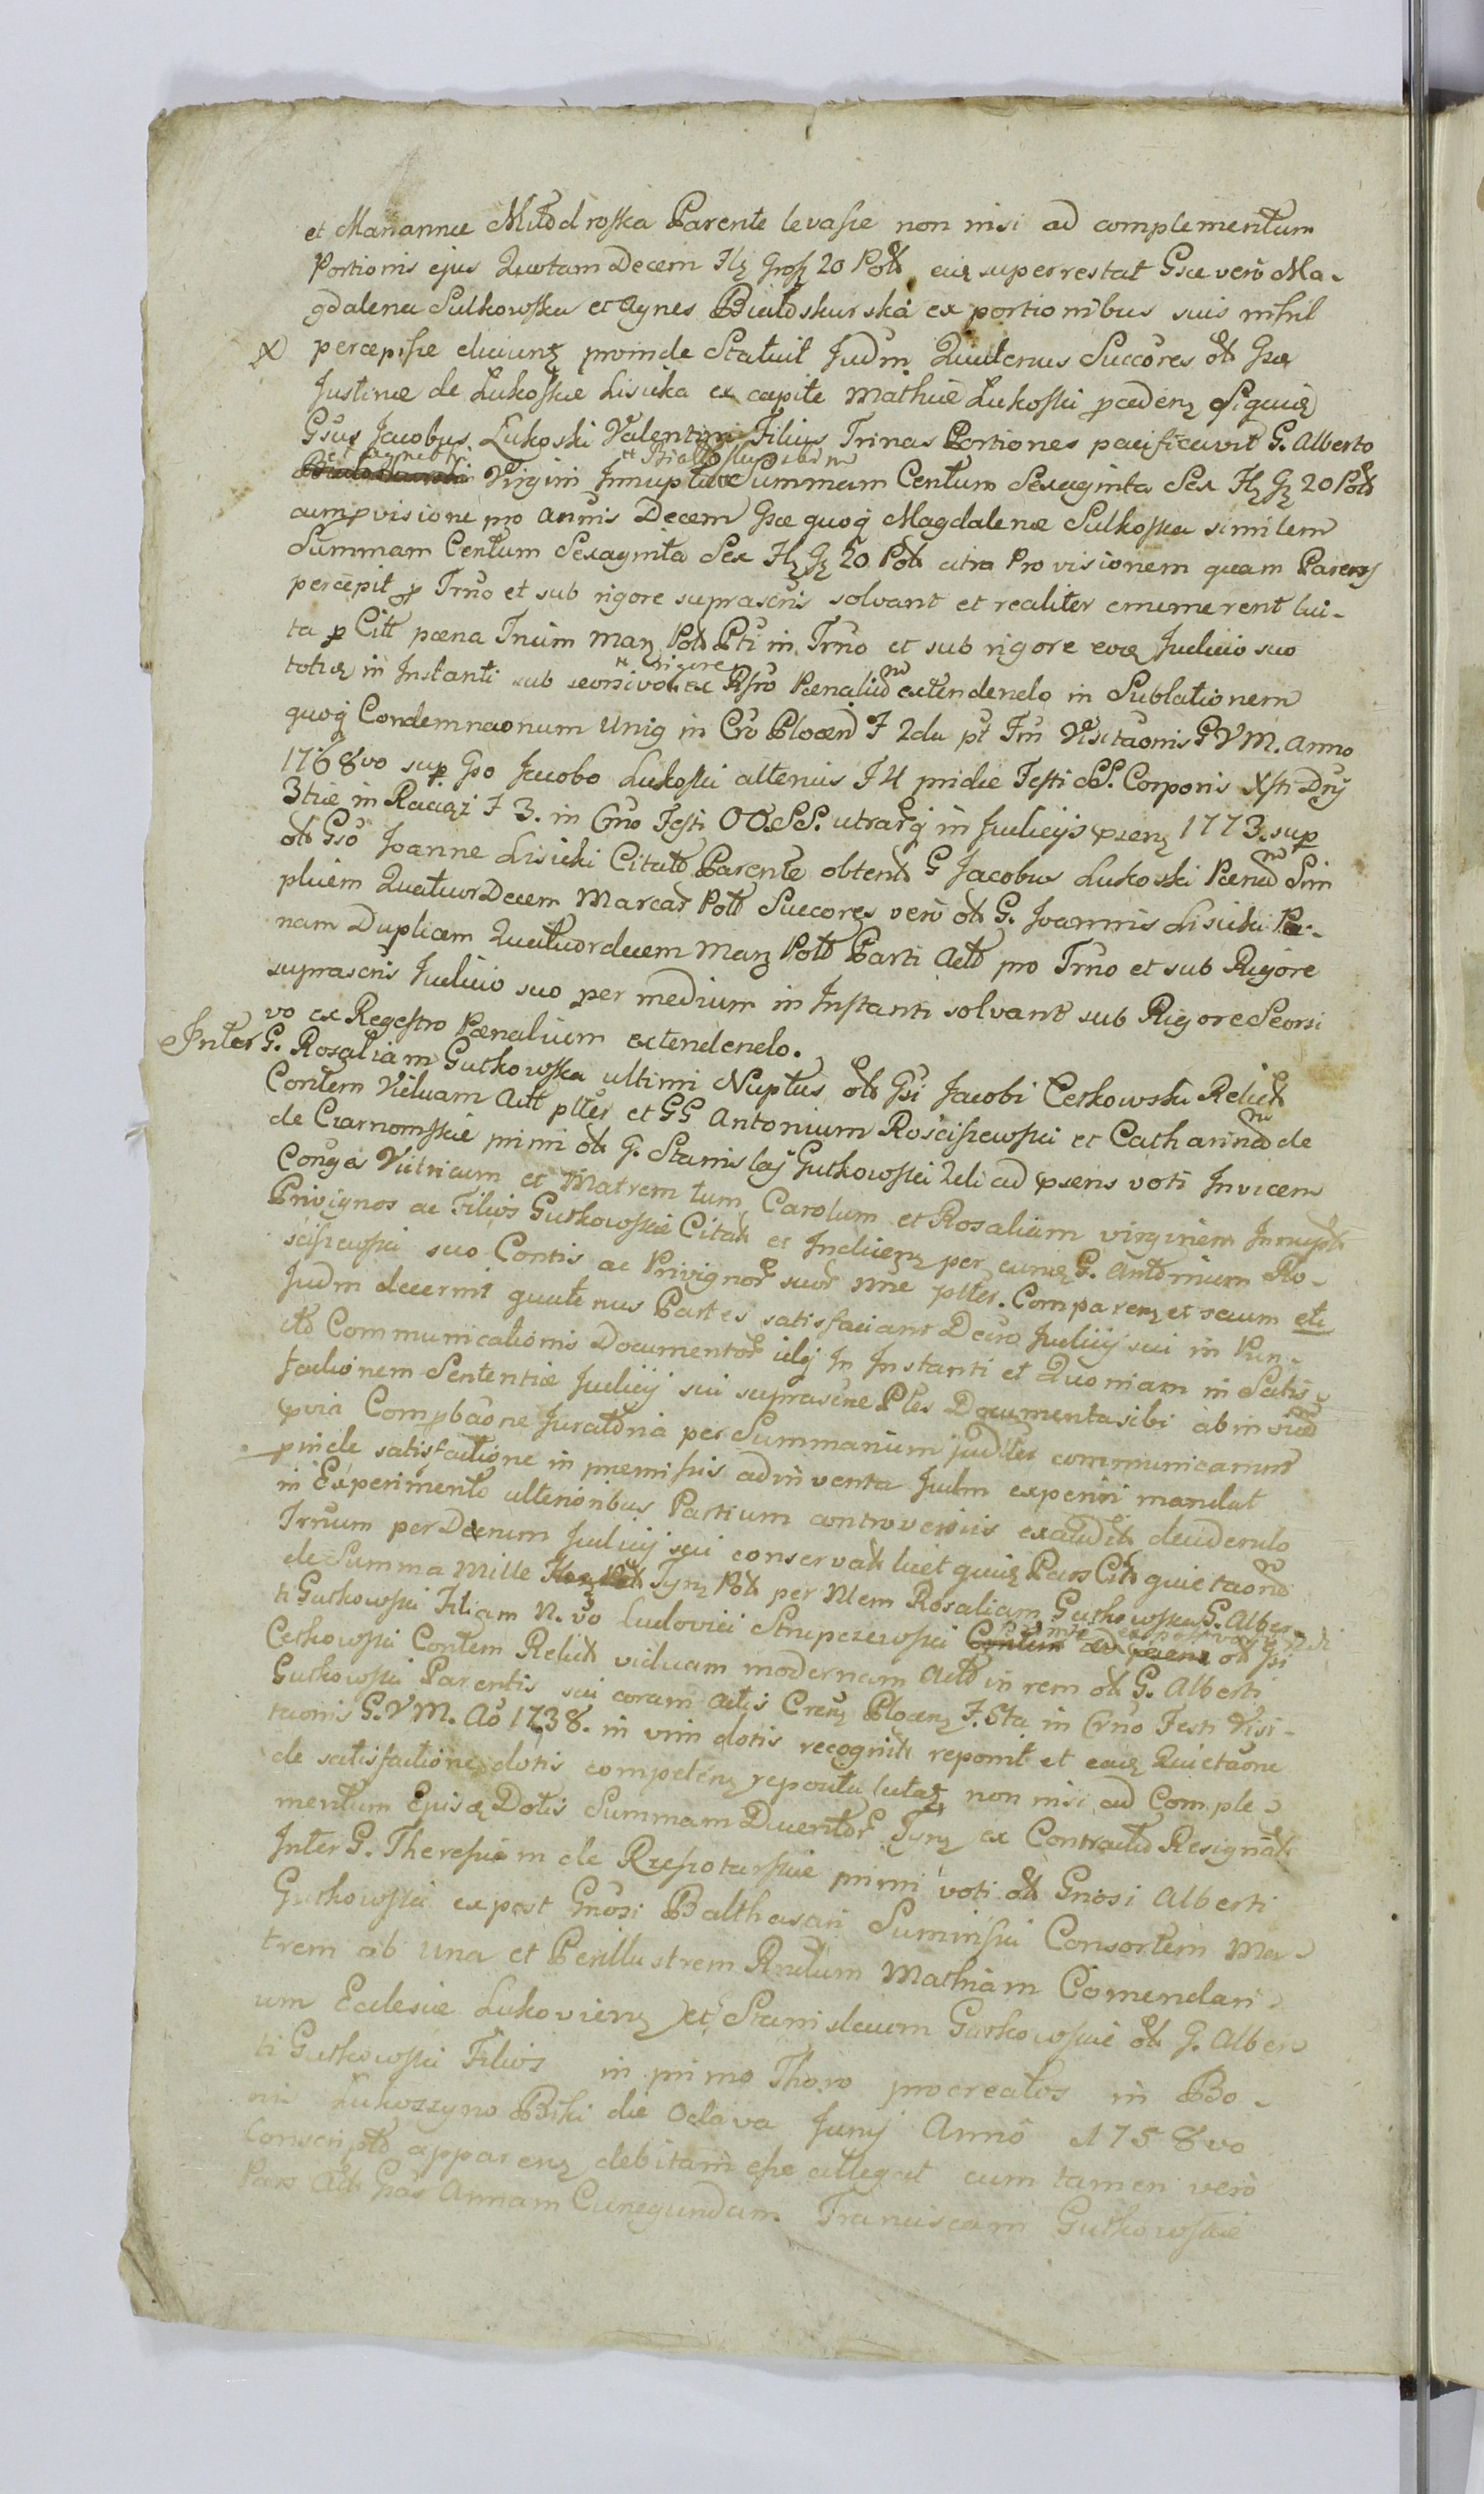 et Mariannæ Milodroska Parente levasse non nisi ad complementum
Portionis ejus Quotam Decem Flz Grosz 20 Pol superrestat Gsæ vero Ma-
gdalena Sulkowska et Agnes Bialoskurska ex portionibus suis nihil
percepisse dicunt proinde Statuit Judm Quatenus Succores ol Gsæ
Justinæ de Lukoskie Lisicka ex capite Mathiæ Lukoski
Gsus Jacobus Lukoski Valentini Filius Trinas Portiones pacificavit G. Alberto
Virgini Innuptæ Summam Centum Sexaginta Sex Flz Gz 20 Pol
cum pvisione pro annis Decem Gsæ quoq Magdalenæ Sulkoska similem
Summam Centum Sexaginta Sex Flz Gz 20 Pol citra Provisionem quam Parens
percepit p Trno et sub rigore suprascris solvant et realiter enumerent lui-
ta p Citt pæna Trium Marz Pol Pti in Trno et sub rigore Judicio suo
in Instanti sub seorsivo ex Rsro Pænaliu extendendo in Sublationem
quoq Condemnaonum Unig in Cro Plocen F 2da pt Fm Visitaonis G V M. Anno
1768vo sup Gso Jacobo Lukoski alterius F 4 pridie Festi SS. Corporis Xsti Dny
3tiæ in Raciąż F 3. in Crno Festi OO. SS. utrarq in Judicys 1773. sup
ol Gso Joanne Lisicki Citato Parente obtent G Jacobus Lukoski Pænam Sim
plicem Quatuor Decem Marcar Pol Succores vero ol G. Joannis Lisicki Pæ-
nam Duplicem Quatuordecem Marz Pol Parti Act pro Trno et sub Rigore
suprascris Judicio suo per medium in Instanti solvant sub Rigore Seorsi
vo ex Regestro Pænalium extendendo.
Inter G. Rosaliam Gutkowska ultimi Nuptus ol Gsi Jacobi Cetkowski Relict
Contem Viduam Act plter et GG Antonium Roscisrewski et Catharinam de
de Czarnomskie primi ol G. Stanislaj Gutkowski 2di ad psens voti Invicem
Conges Vitricum et Matrem tum Carolum et Rosaliam virginem Innupt
Privignos ac Filios Gutkowskie Citat et Inducen per G. Antonium Ro-
scisrewski suo Contis ac Privignor suor nne plter. Comparen et secum
Judm decernit quatenus Partes satisfaciant Decro Judicij sui in Pun-
cto Communicationis Documentor idq In Instanti et Quoniam in Satis-
factionem Sententiæ Judicij sui suprascræ Ptes Documenta sibi ab in vicem
pvia Compbaone Juratoria per Summarium communicarunt
pinde satisfactione in præmissis adinventa Judm experiri mandat
in Experimento ulterioribus Partium controversiis exaudit decidendo
Trnum per Decrum Judicij sui conservat licet Pars Cit quietaonem
de Summa Mille Tynz Pol per Rosaliam Gutkowska G. Alber-
ti Gutkowski Filiam N. vo Ludovici Strupczewski ol Gsi
Cetkowski Contem Relict viduam modernam Act in rem ol G. Alberti
Gutkowski Parentis sui coram Actis Crens Plocenz F. 6ta in Crno Festi Visi-
taonis G. V M. Ao 1738. in vim dotis recognit reponit et Quietaone
de satisfactione dotis competenz non nisi ad Comple-
mentum Dotis Summam Ducentor Tynz ex Contractu Resignat
Inter G. Theresiam de Rzeszotarskie primi voti ol Gnosi Alberti
Gutkowski ex post Gnosi Balthasari Suminski Consortem Ma-
trem ab una et Perillustrem Rndum Mathiam Comendari-
um Eclesiæ Lukovienz et Stanislaum Gutkowskie ol G. Alber-
ti Gutkowski Filios in primo Thoro procreatos in Bo-
nis Lukoszyno Biki die Octava Junij Anno 1758vo
Conscripto apparenz debitam esse allegat cum tamen vero
Pars Act Gas Annam Cunegundam Franciscam Gutkowskie